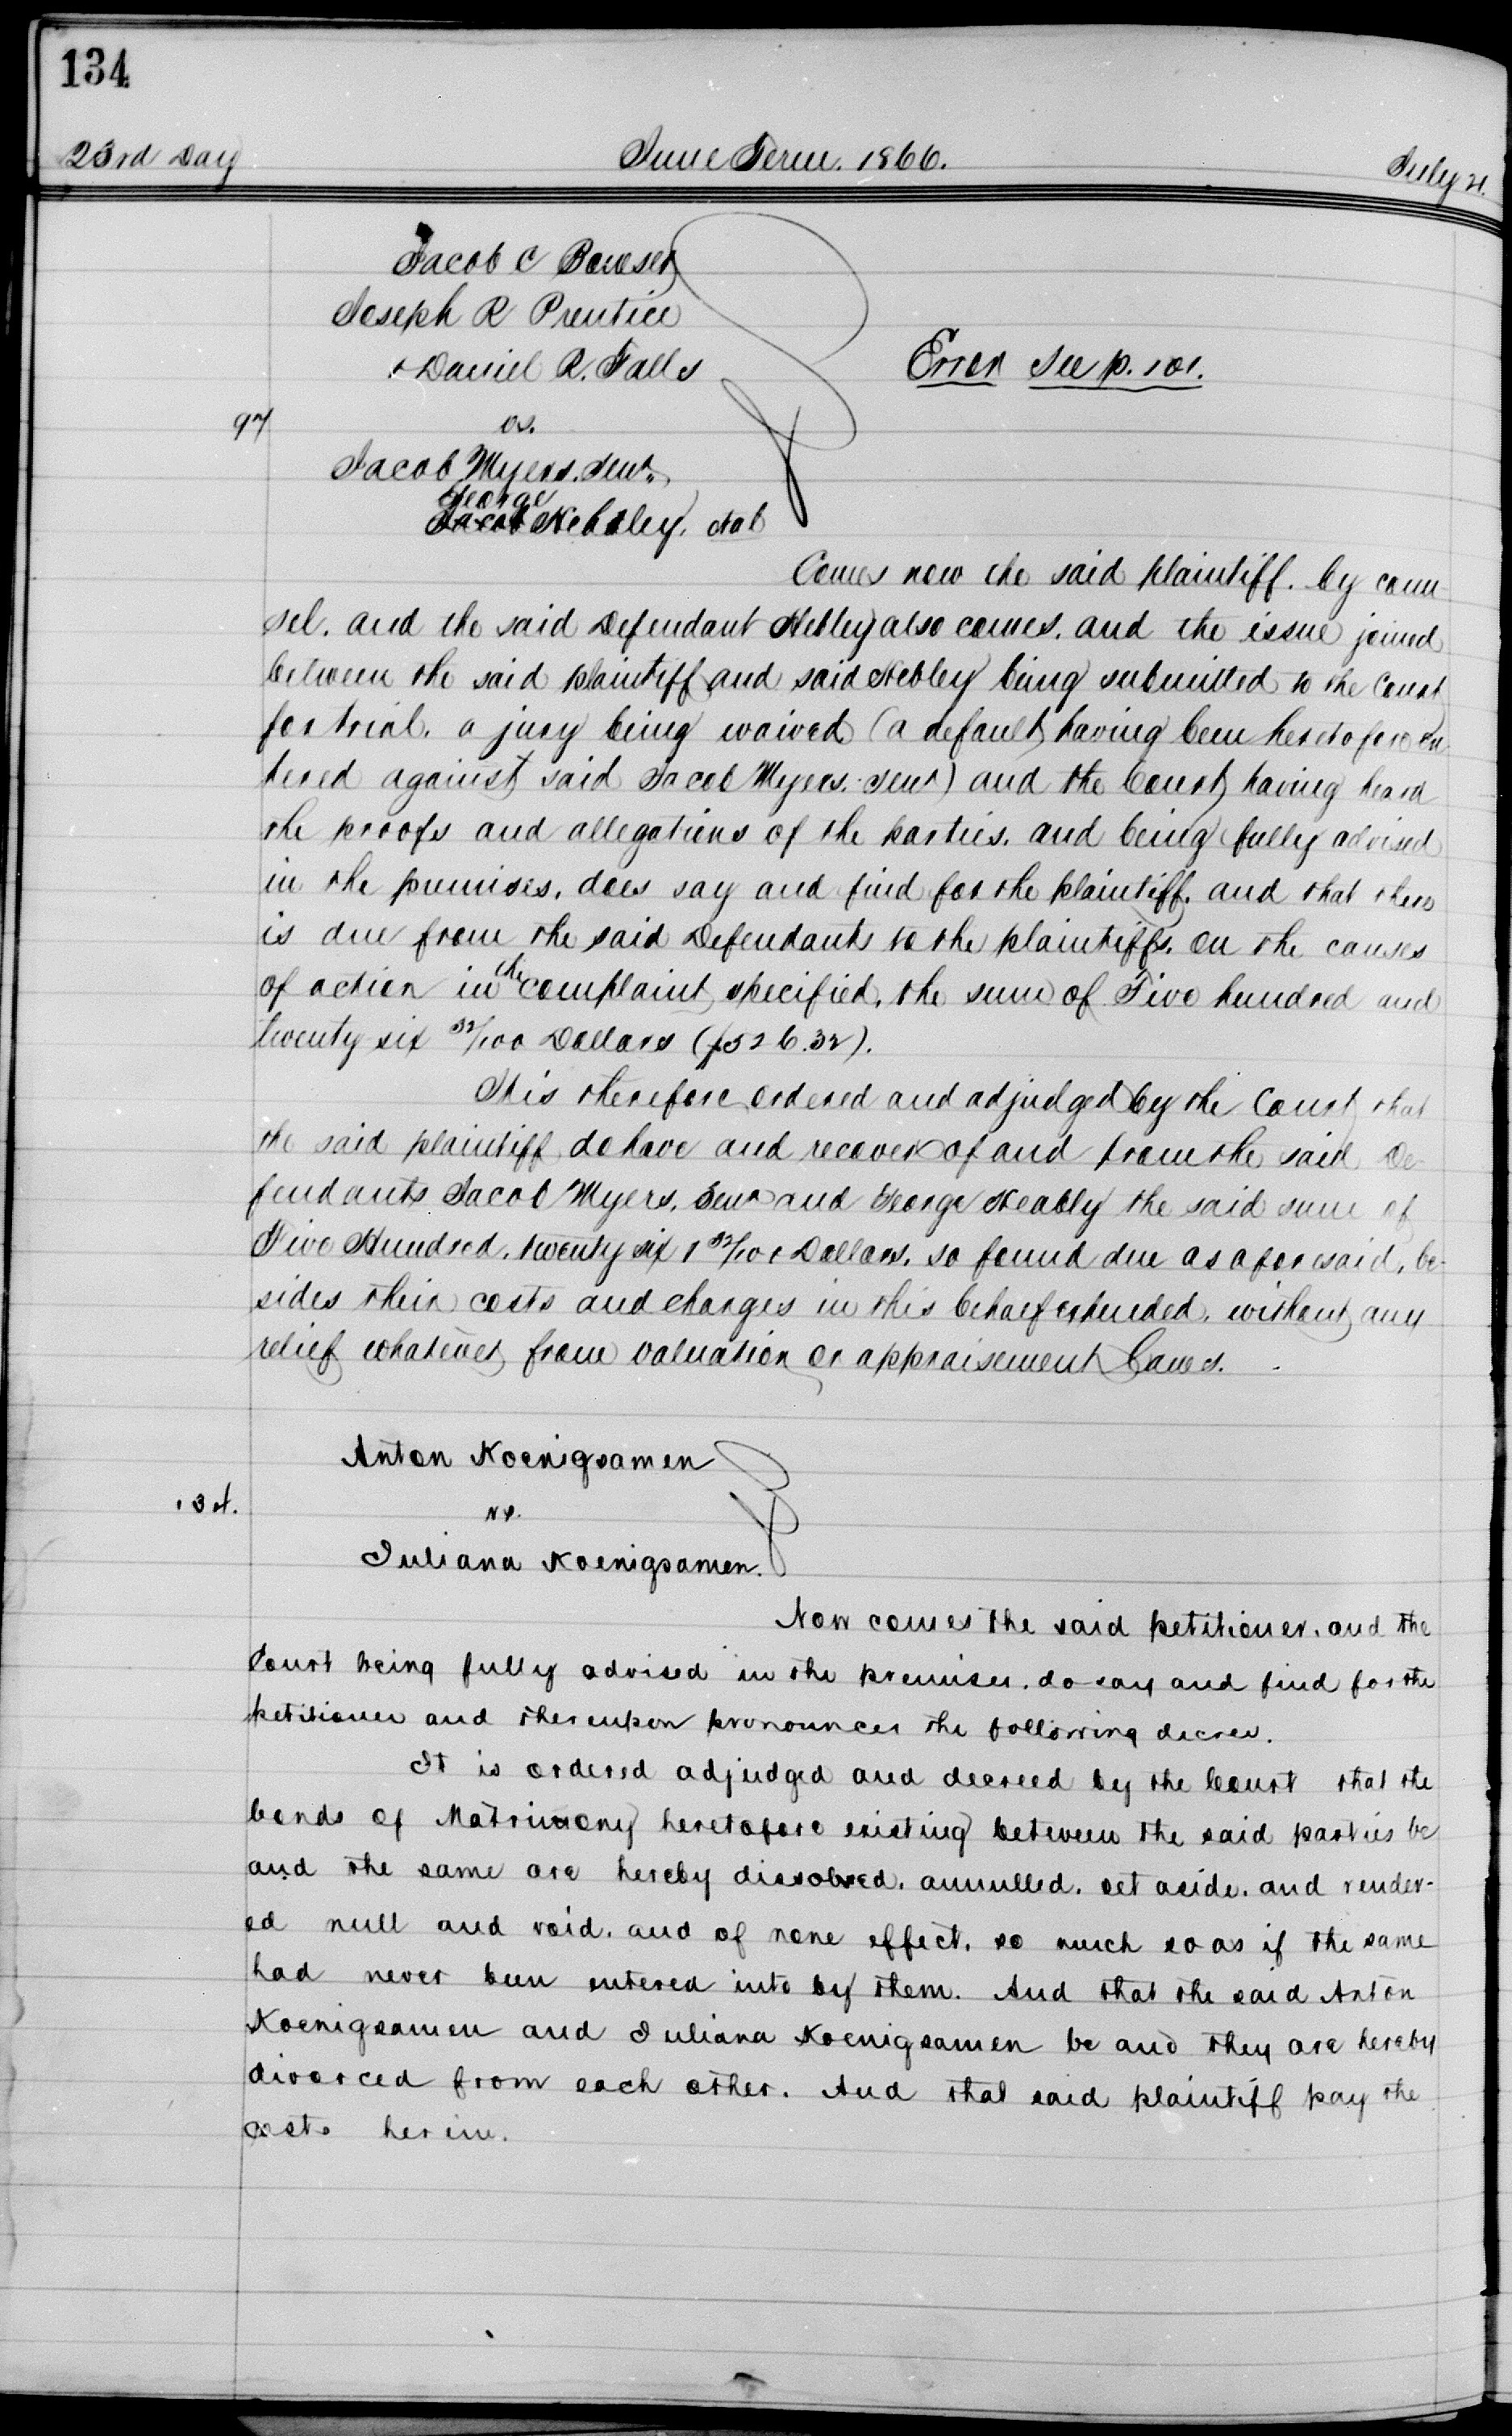 134
23rd Day June Term. 1866. July 21.
Jacob C Bowser
Joseph R Prentice
& Daniel R. Falls Error See p. 101.
97 vs.
Jacob Myers. Senr.
George
Jacob Nebley,
Comes now the said plaintiff. by coun-
sel. and the said Defendant Nebley also comes. and the issue joined
between the said plaintiff and said Nebley being submitted to the Court
for trial. a jury being waived (a default having been heretofore en-
tered against said Jacob Myers. Senr) and the Court having heard
the proofs and allegations of the parties. and being fully advised
in the premises. does say and find for the plaintiff. and that there
is due from the said Defendants to the plaintiffs. on the causes
of action in the complaint specified. the sum of Five hundred and
twenty six 32/100 Dollars ($526.32).
It is therefore ordered and adjudged by the Court that
the said plaintiff do have and recover of and from the said De-
fendants Jacob Myers. Senr and George Neably the said sum of
Five Hundred. twenty six & 32/100 Dollars. so found due as aforesaid, be-
sides their costs and charges in this behalf expended. without any
relief whatever from valuation or appraisement Laws.
Anton Koenigsamen
134. vs.
Juliana Koenigsamen.
Now comes the said petitioner. and the
Court being fully advised in the premises. do say and find for the
petitioner and thereupon pronounces the following decree.
It is ordered adjudged and decreed by the Court that the
bonds of Matrimony heretofore existing between the said parties be
and the same are hereby dissolved. annulled. set aside. and render-
ed null and void. and of none effect. so much so as if the same
had never been entered into by them. And that the said Anton
Koenigsamen and Juliana Koenigsamen be and they are hereby
divorced from each other. And that said plaintiff pay the
costs herein.